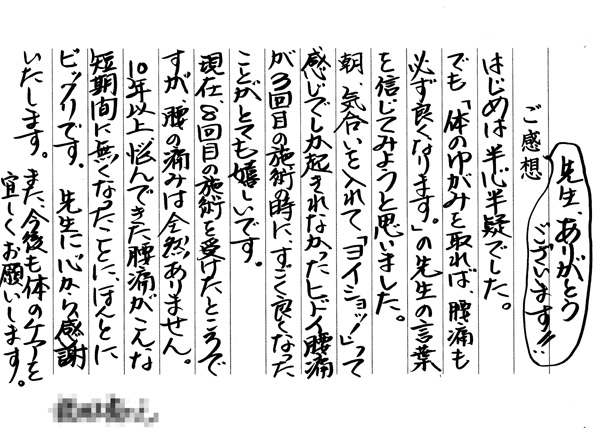 先生、ありがとう
ございます!!
ご感想
はじめは半心半疑でした。
でも「体のゆがみを取れば、腰痛も
必ず良くなります。」の先生の言葉
を信じてみようと思いました。
朝、気合いを入れて「ヨイショッ!」って
感じでしか起きれなかったヒドイ腰痛
が3回目の施術の時に、すごく良くなった
ことがとても嬉しいです。
現在、8回目の施術を受けたところで
すが、腰の痛みは全然ありません。
10年以上悩んできた腰痛がこんな
短期間に無くなったことに、ほんとに
ビックリです。先生に心から感謝
いたします。また、今後も体のケアを
宜しくお願いします。